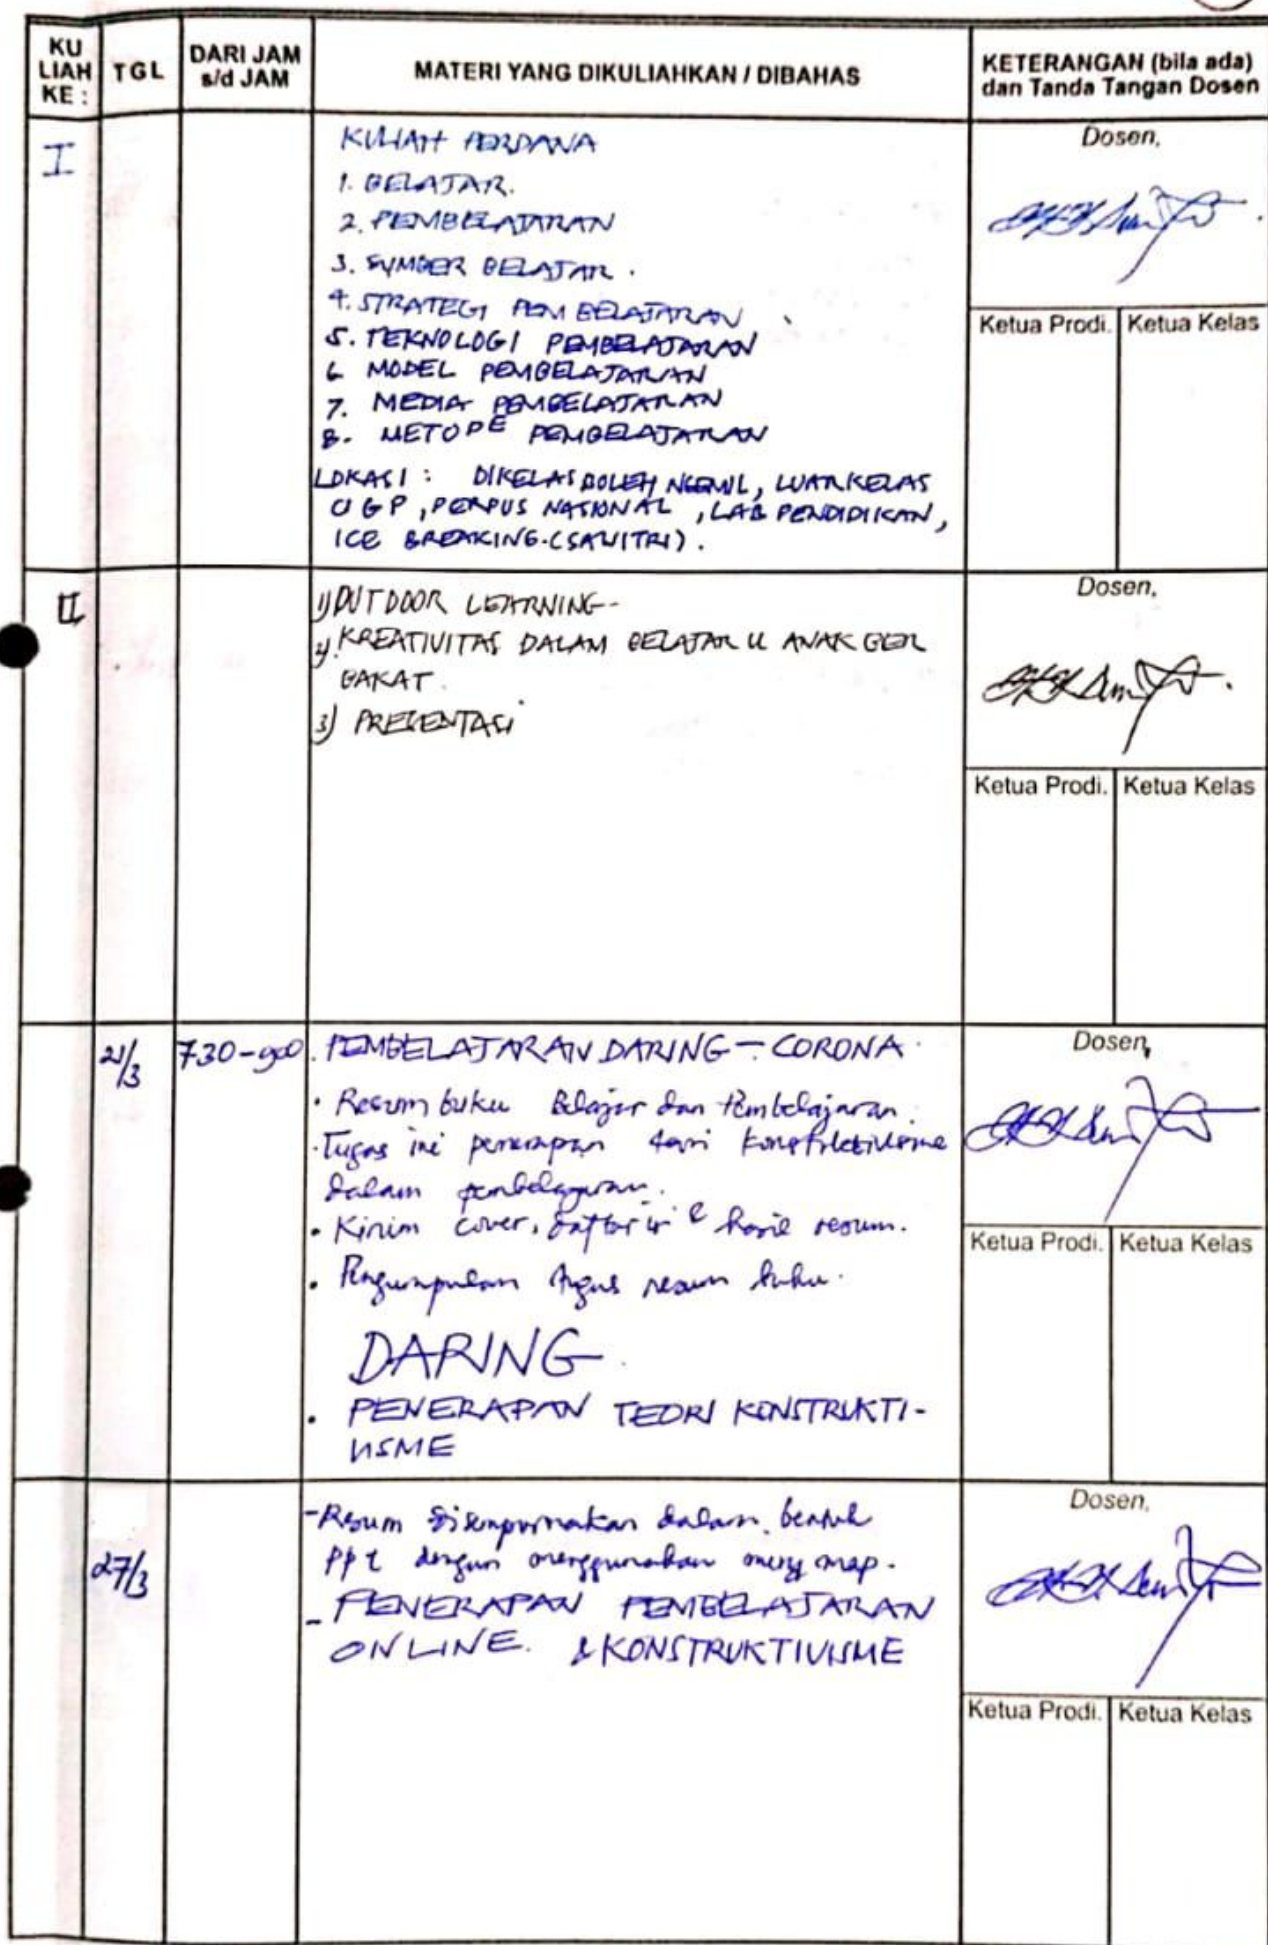 KU LIAH KE :
TGL
DARI JAM s/d JAM
MATERI YANG DIKULIAHKAN / DIBAHAS
KETERANGAN (bila ada) dan Tanda Tangan Dosen
I
KULIAH PERDANA
1. BELAJAR.
2. PEMBELAJARAN
3. SUMBER BELAJAR .
4. STRATEGI PEMBELAJARAN
5. TEKNOLOGI PEMBELAJARAN
6 MODEL PEMBELAJARAN
7. MEDIA PEMBELAJARAN
8. METODE PEMBELAJARAN
LOKASI : DIKELAS BOLEH NGEMIL, LUAR KELAS
UGP, PERPUS NASIONAL, LAB PENDIDIKAN,
ICE BREAKING. (SAWITRI).
Dosen,
Ketua Prodi. Ketua Kelas
II
1) OUTDOOR LEARNING-
2) KREATIVITAS DALAM BELAJAR U ANAK BER
BAKAT.
3) PRESENTASI
Dosen,
Ketua Prodi. Ketua Kelas
21/3
7.30-900
PEMBELAJARAN DARING - CORONA.
• Resum buku Belajar dan Pembelajaran.
• Tugas ini penerapan dari
dalam pembelajaran.
• Kirim cover, daftar isi & hasil resum.
• Pengumpulan tugas resum buku.
DARING
• PENERAPAN TEORI KONSTRUKTI-
VISME
Dosen,
Ketua Prodi. Ketua Kelas
27/3
- Resum disempurnakan dalam bentuk
ppt dengan menggunakan map.
- PENERAPAN PEMBELAJARAN
ONLINE. & KONSTRUKTIVISME
Dosen,
Ketua Prodi. Ketua Kelas